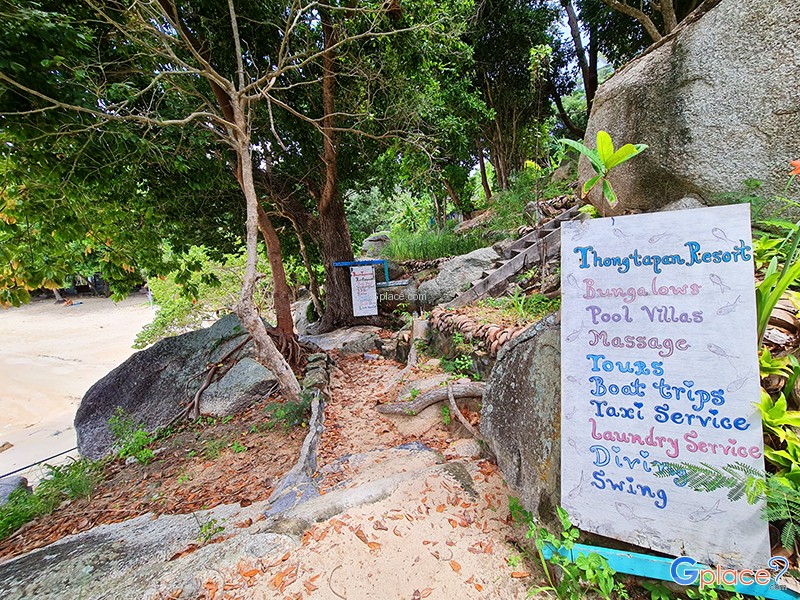 Thongtapan Resort
Bungalows
Pool Villas
Massage
Tours
Boat trips
Taxi Service
Laundry Service
Diving
Swing
Gplace